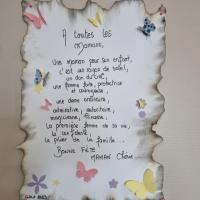 A toutes les
Mamans,
Une maman pour son enfant,
c'est un rayon de soleil,
un don du ciel,
une femme forte, protectrice
et courageuse,
une dame ordinaire,
admirative, autoritaire,
maquineuse,
la première femme de sa vie,
la confidente,
le pilier de la famille...
Bonne Fête
Maman Chérie